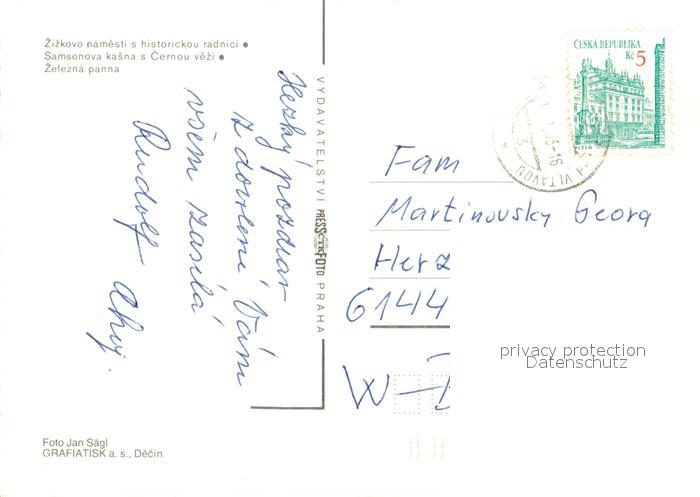 Žižkovo náměstí s historickou radnicí ●
Samsonova kašna s Černou věží ●
Železná panna
Hezký pozdrav
z dovolené Vám
všem zasílá
Rudolf Ahoj.
VYDAVATELSTVÍ PRESSFOTO PRAHA
ČESKÁ REPUBLIKA
Kč 5
VLTAVOU
Fam
Martinovsky Georg
Herz
6144
W-D
privacy protection
Datenschutz
Foto Jan Ságl
GRAFIATISK a. s., Děčín